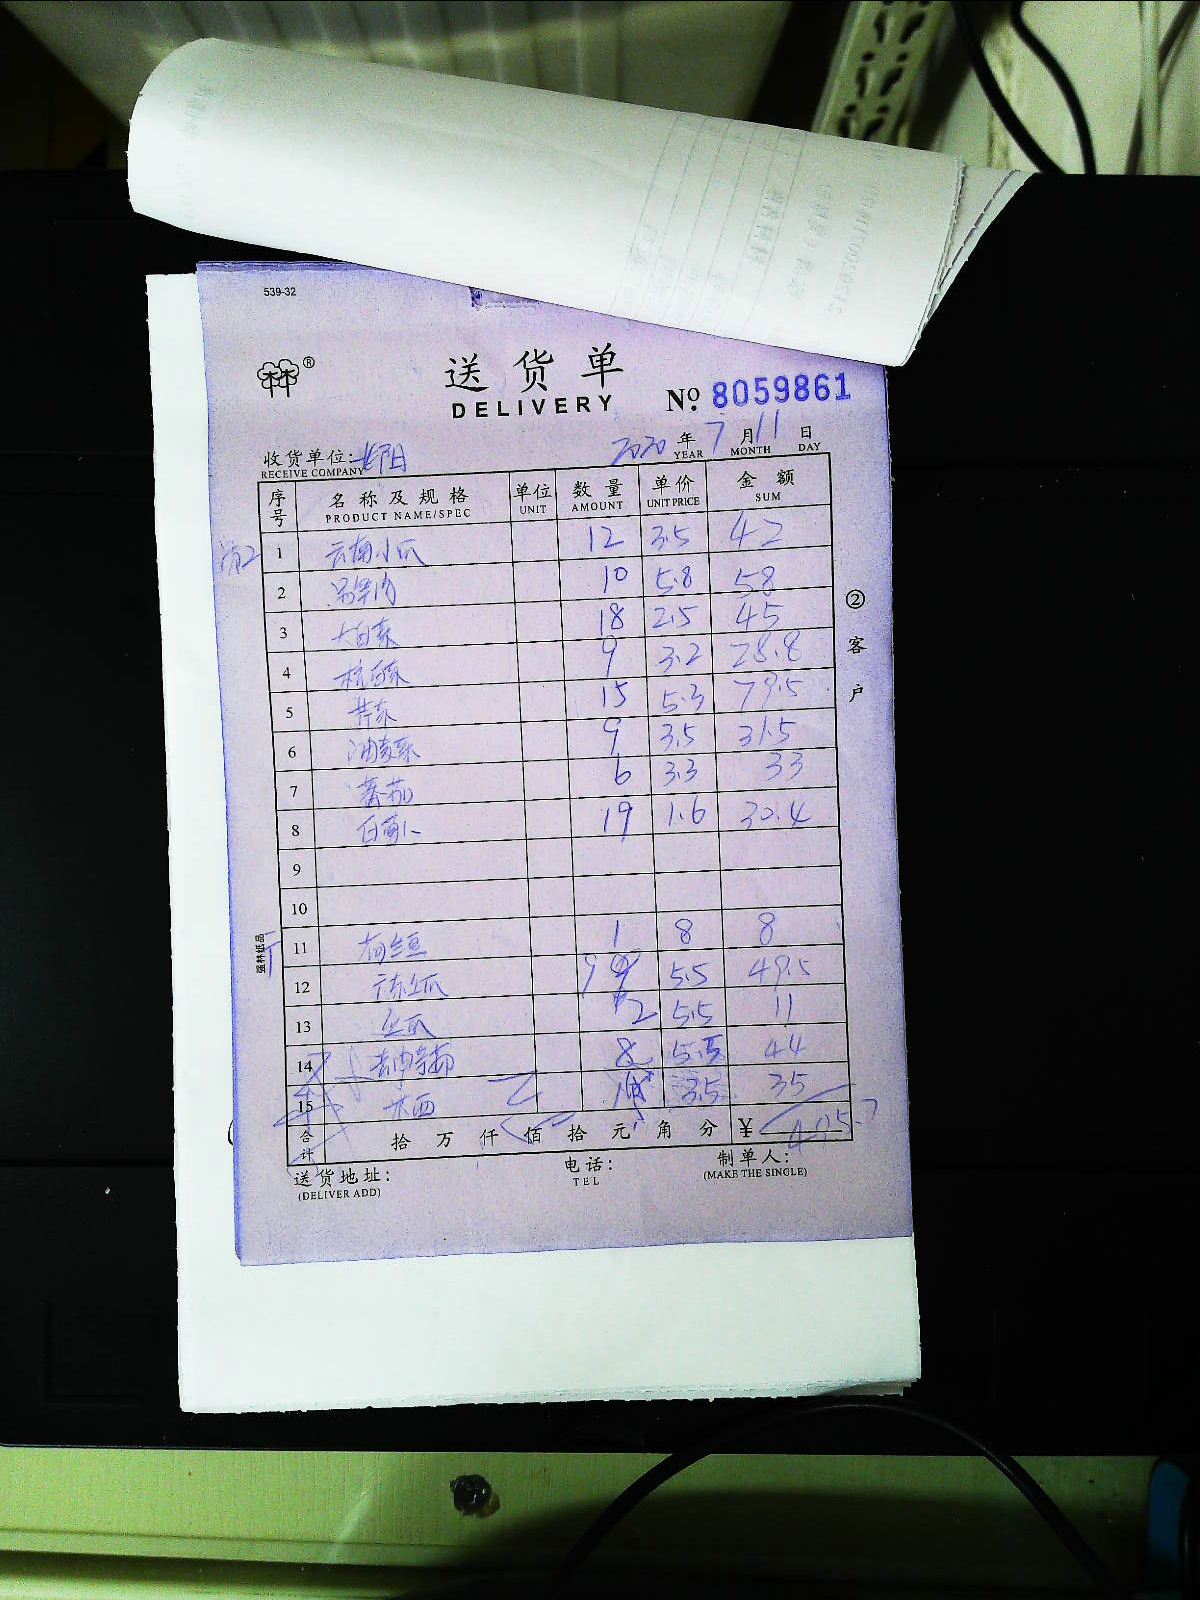 539-32
送货单
DELIVERY
№ 8059861
2020 年 7 月 11 日
YEAR MONTH DAY
收货单位:
RECEIVE COMPANY
序号 名称及规格 单位 数量 单价 金额
PRODUCT NAME/SPEC UNIT AMOUNT UNIT PRICE SUM
1 云南小瓜 12 3.5 42
2 10 5.8 58
3 大白菜 18 2.5 45
4 杭白菜 9 3.2 28.8
5 芹菜 15 5.3 79.5
6 油麦菜 9 3.5 31.5
7 番茄 6 3.3 33
8 白萝卜 19 1.6 30.4
9
10
11 1 8 8
12 5.5 49.5
13 丝瓜 2 5.5 11
14 8 5.5 44
15 3.5 35
合计 拾 万 仟 佰 拾 元 角 分 ¥
送货地址:
(DELIVER ADD)
电话:
TEL
制单人:
(MAKE THE SINGLE)
②客户
强林纸品